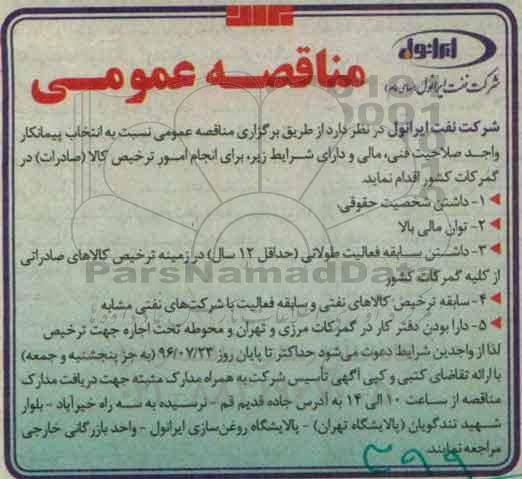 ایرانول
شرکت نفت ایرانول (سهامی عام)
مناقصه عمومی
شرکت نفت ایرانول در نظر دارد از طریق برگزاری مناقصه عمومی نسبت به انتخاب پیمانکار
واجد صلاحیت فنی، مالی و دارای شرایط زیر، برای انجام امور ترخیص کالا (صادرات) در
گمرکات کشور اقدام نماید.
۱- داشتن شخصیت حقوقی
۲- توان مالی بالا
۳- داشتن سابقه فعالیت طولانی (حداقل ۱۲ سال) در زمینه ترخیص کالاهای صادراتی
از کلیه گمرکات کشور
ParsNamadData
۴- سابقه ترخیص کالاهای نفتی و سابقه فعالیت با شرکت‌های نفتی مشابه
۵- دارا بودن دفتر کار در گمرکات مرزی و تهران و محوطه تحت اجاره جهت ترخیص
لذا از واجدین شرایط دعوت می‌شود حداکثر تا پایان روز ۹۶/۰۷/۲۳ (به جز پنجشنبه و جمعه)
با ارائه تقاضای کتبی و کپی آگهی تأسیس شرکت به همراه مدارک مثبته جهت دریافت مدارک
مناقصه از ساعت ۱۰ الی ۱۴ به آدرس جاده قدیم قم - نرسیده به سه راه خیرآباد - بلوار
شهید تندگویان (پالایشگاه تهران) - پالایشگاه روغن‌سازی ایرانول - واحد بازرگانی خارجی
مراجعه نمایند.